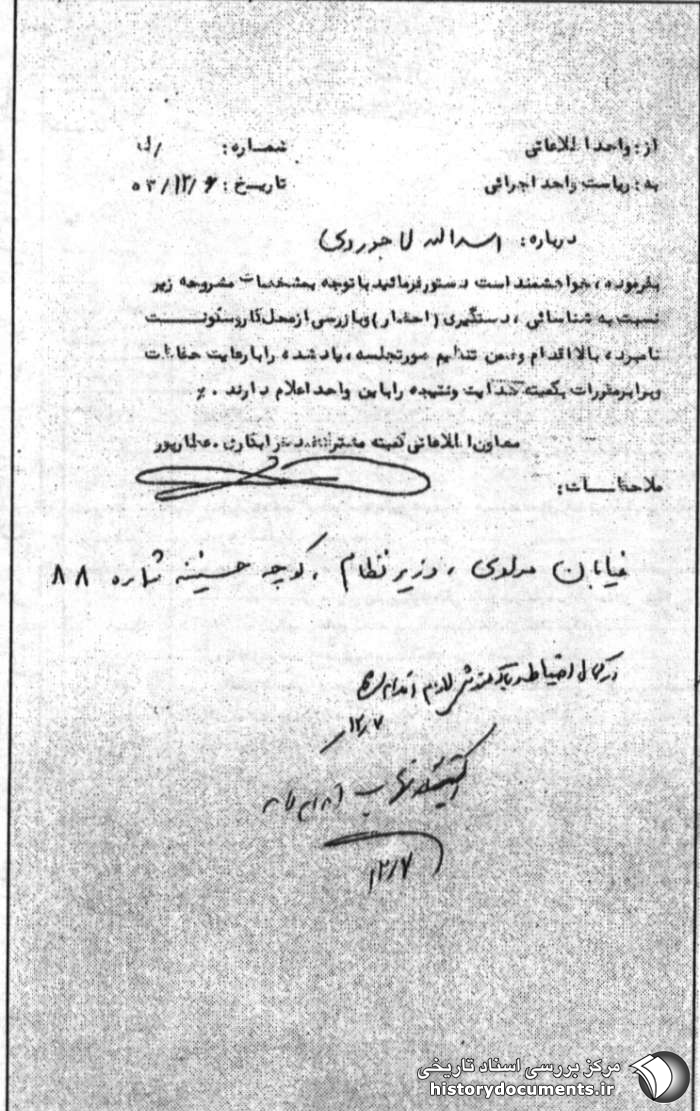 از: واحد اطلاعاتی شماره: /
به: ریاست واحد اجرائی تاریخ: ۵۳/۱۲/۶
درباره: اسداله لاجوردی
بفرموده، خواهشمند است دستور فرمائید با توجه بمشخصات مشروحه زیر
نسبت به شناسائی، دستگیری (احضار) و بازرسی از محل کار و سکونت
نامبرده بالا اقدام و ضمن تنظیم صورتجلسه، یاد شده را با رعایت حفاظت
و برابر مقررات بکمیته هدایت و نتیجه را باین واحد اعلام دارند. ٪
معاون اطلاعاتی کمیته مشترک ضد خرابکاری. عطارپور
ملاحظات:
خیابان مولوی، وزیر نظام، کوچه حسینیه شماره ۸۸
لازم اقدام
۱۲/۷
۱۲/۷
مرکز بررسی اسناد تاریخی
historydocuments.ir